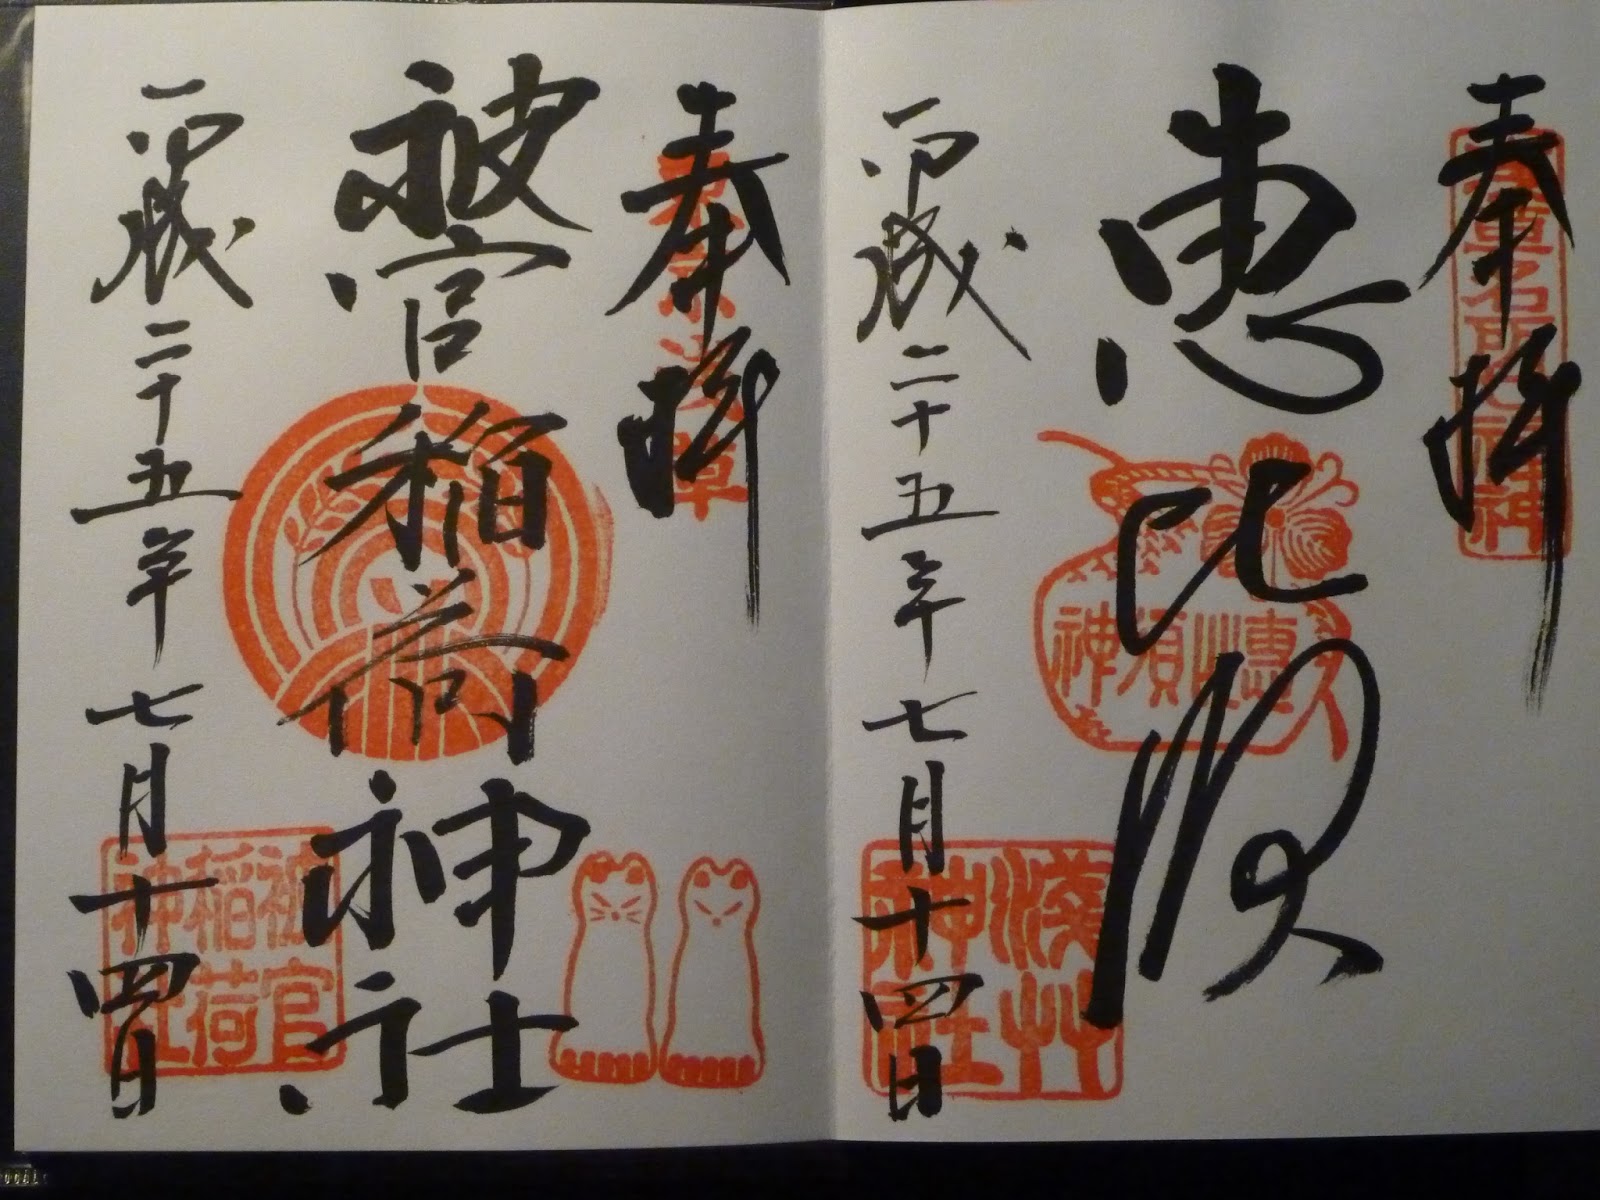 奉拝
恵比須
平成二十五年七月十四日
浅草名所七福神
恵比須神
浅草神社
奉拝
被官稲荷神社
平成二十五年七月十四日
東京浅草
被官稲荷神社